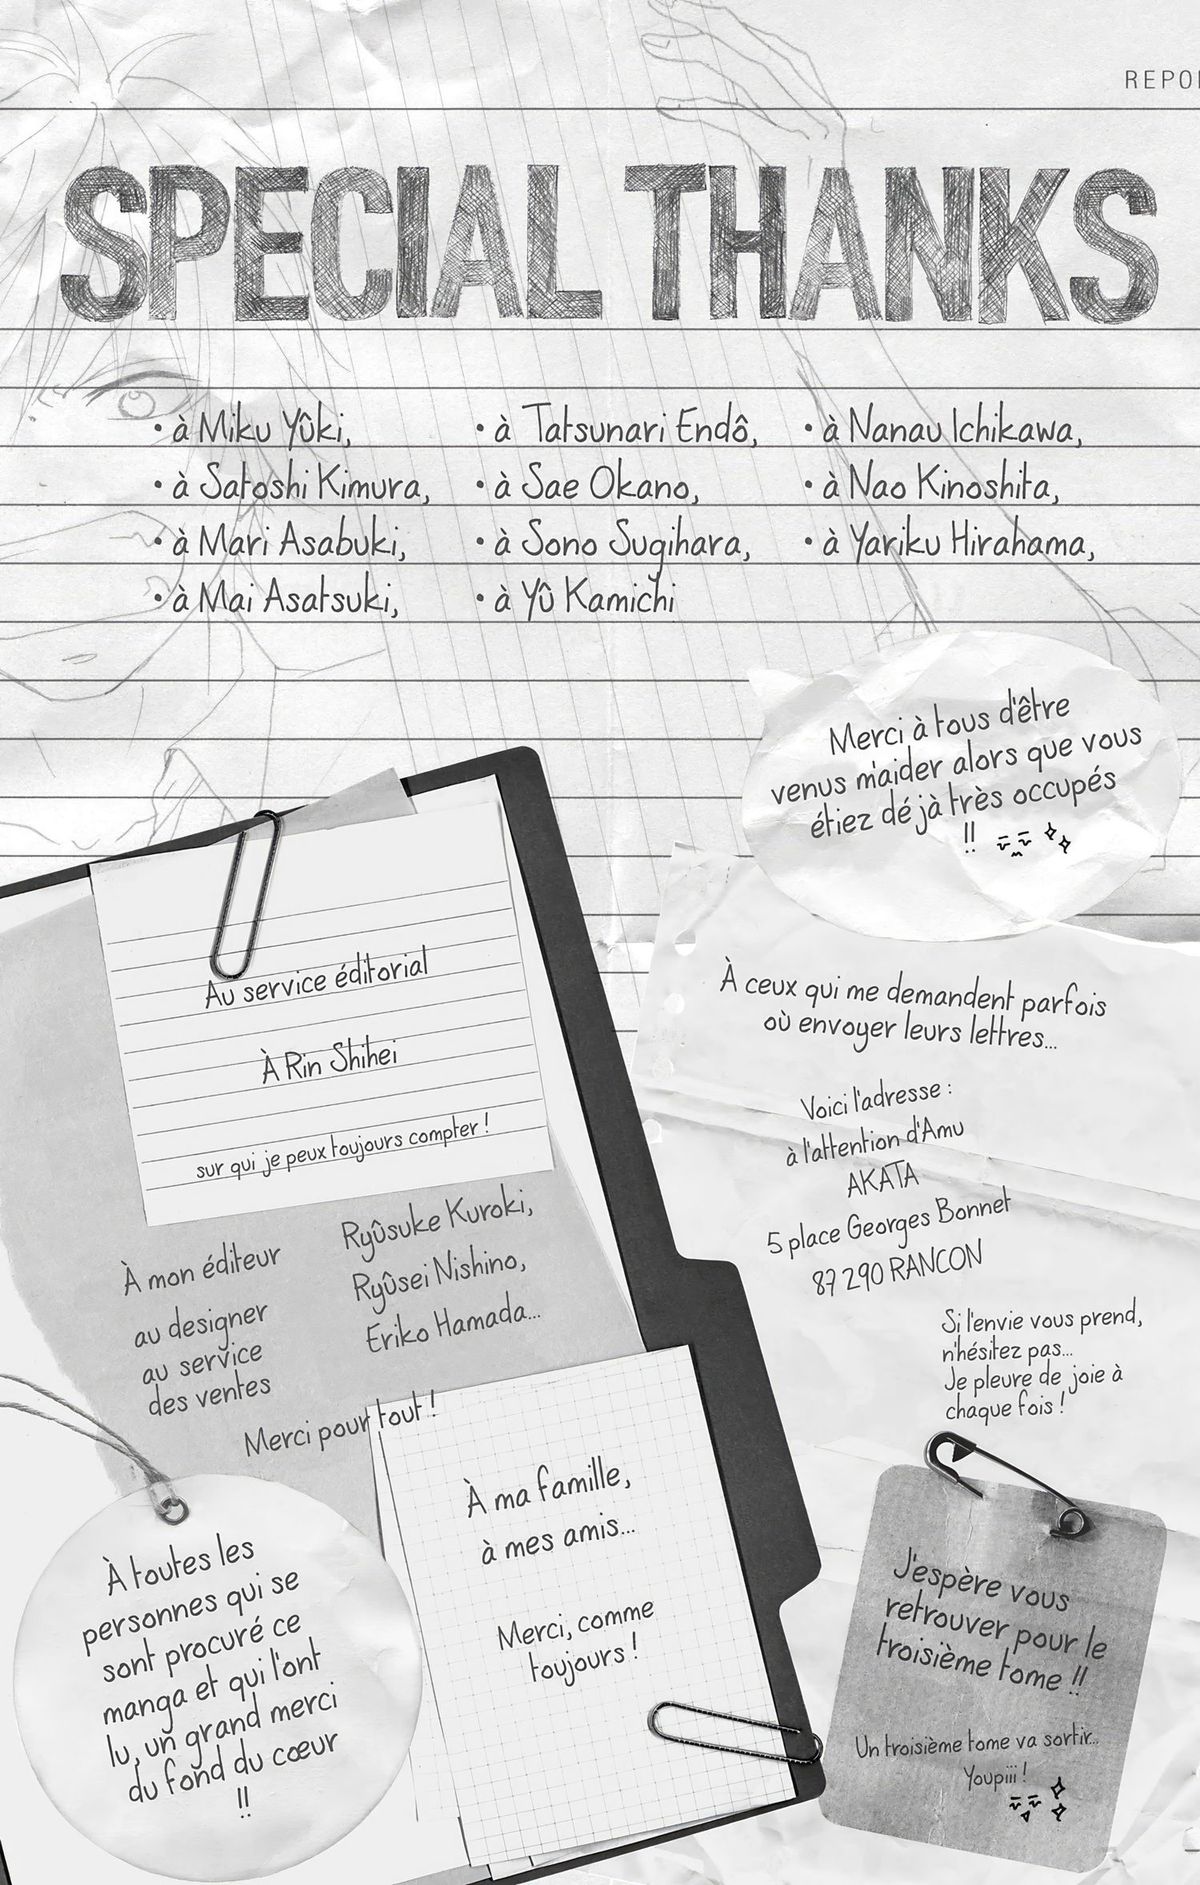 REPO
SPECIAL THANKS
• à Miku Yûki,
• à Satoshi Kimura,
• à Mari Asabuki,
• à Mai Asatsuki,
• à Tatsunari Endô,
• à Sae Okano,
• à Sono Sugihara,
• à Yû Kamichi
• à Nanau Ichikawa,
• à Nao Kinoshita,
• à Yariku Hirahama,
Merci à tous d'être
venus m'aider alors que vous
étiez déjà très occupés
!!
Au service éditorial
À Rin Shihei
sur qui je peux toujours compter !
À mon éditeur
au designer
au service
des ventes
Ryûsuke Kuroki,
Ryûsei Nishino,
Eriko Hamada...
Merci pour tout !
À ceux qui me demandent parfois
où envoyer leurs lettres...
Voici l'adresse :
à l'attention d'Amu
AKATA
5 place Georges Bonnet
87 290 RANCON
Si l'envie vous prend,
n'hésitez pas...
Je pleure de joie à
chaque fois !
À ma famille,
à mes amis...
Merci, comme
toujours !
À toutes les
personnes qui se
sont procuré ce
manga et qui l'ont
lu, un grand merci
du fond du cœur
!!
J'espère vous
retrouver pour le
troisième tome !!
Un troisième tome va sortir...
Youpiii !